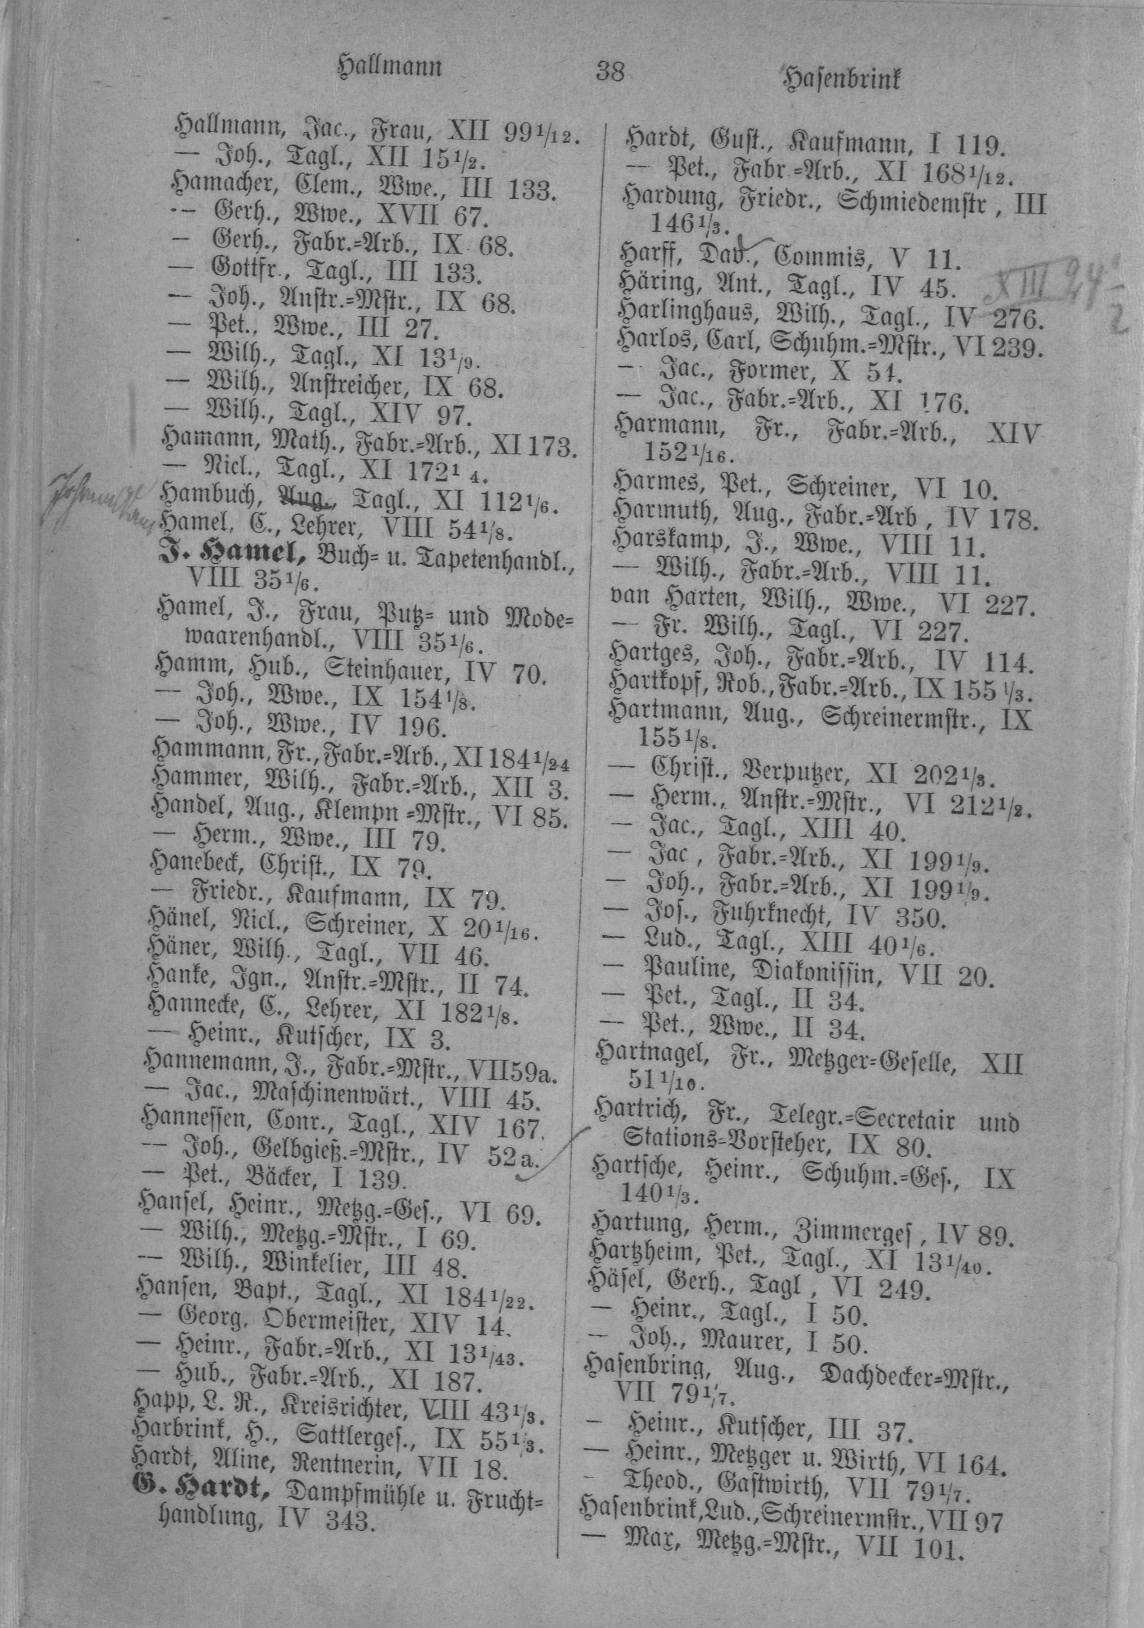 Hallmann 38 Hasenbrink
Hallmann, Jac., Frau, XII 99 1/12.
— Joh., Tagl., XII 15 1/2.
Hamacher, Clem., Wwe., III 133.
— Gerh., Wwe., XVII 67.
— Gerh., Fabr.=Arb., IX 68.
— Gottfr., Tagl., III 133.
— Joh., Anstr.=Mstr., IX 68.
— Pet., Wwe., III 27.
— Wilh., Tagl., XI 13 1/9.
— Wilh., Anstreicher, IX 68.
— Wilh., Tagl., XIV 97.
Hamann, Math., Fabr.=Arb., XI 173.
— Nicl., Tagl., XI 172 1 4.
Hambuch, Aug., Tagl., XI 112 1/6.
Hamel, C., Lehrer, VIII 54 1/8.
J. Hamel, Buch= u. Tapetenhandl.,
VIII 35 1/6.
Hamel, J., Frau, Putz= und Mode=
waarenhandl., VIII 35 1/6.
Hamm, Hub., Steinhauer, IV 70.
— Joh., Wwe., IX 154 1/8.
— Joh., Wwe., IV 196.
Hammann, Fr., Fabr.=Arb., XI 184 1/24
Hammer, Wilh., Fabr.=Arb., XII 3.
Handel, Aug., Klempn =Mstr., VI 85.
— Herm., Wwe., III 79.
Hanebeck, Christ., IX 79.
— Friedr., Kaufmann, IX 79.
Hänel, Nicl., Schreiner, X 20 1/16.
Häner, Wilh., Tagl., VII 46.
Hanke, Ign., Anstr.=Mstr., II 74.
Hannecke, C., Lehrer, XI 182 1/8.
— Heinr., Kutscher, IX 3.
Hannemann, J., Fabr.=Mstr., VII 59a.
— Jac., Maschinenwärt., VIII 45.
Hannessen, Conr., Tagl., XIV 167.
— Joh., Gelbgieß.=Mstr., IV 52a.
— Pet., Bäcker, I 139.
Hansel, Heinr., Metzg.=Ges., VI 69.
— Wilh., Metzg.=Mstr., I 69.
— Wilh., Winkelier, III 48.
Hansen, Bapt., Tagl., XI 184 1/22.
— Georg, Obermeister, XIV 14.
— Heinr., Fabr.=Arb., XI 13 1/43.
— Hub., Fabr.=Arb., XI 187.
Happ, L. R., Kreisrichter, VIII 43 1/3.
Harbrink, H., Sattlerges., IX 55 1/3.
Hardt, Aline, Rentnerin, VII 18.
G. Hardt, Dampfmühle u. Frucht=
handlung, IV 343.
Hardt, Gust., Kaufmann, I 119.
— Pet., Fabr =Arb., XI 168 1/12.
Hardung, Friedr., Schmiedemstr , III
146 1/3.
Harff, Dav., Commis, V 11.
Häring, Ant., Tagl., IV 45. XIII 24 1/2
Harlinghaus, Wilh., Tagl., IV 276.
Harlos, Carl, Schuhm.=Mstr., VI 239.
— Jac., Former, X 54.
— Jac., Fabr.=Arb., XI 176.
Harmann, Fr., Fabr.=Arb., XIV
152 1/16.
Harmes, Pet., Schreiner, VI 10.
Harmuth, Aug., Fabr.=Arb , IV 178.
Harskamp, J., Wwe., VIII 11.
— Wilh., Fabr.=Arb., VIII 11.
van Harten, Wilh., Wwe., VI 227.
— Fr. Wilh., Tagl., VI 227.
Hartges, Joh., Fabr.=Arb., IV 114.
Hartkopf, Rob., Fabr.=Arb., IX 155 1/3.
Hartmann, Aug., Schreinermstr., IX
155 1/8.
— Christ., Verputzer, XI 202 1/3.
— Herm., Anstr.=Mstr., VI 212 1/2.
— Jac., Tagl., XIII 40.
— Jac , Fabr.=Arb., XI 199 1/9.
— Joh., Fabr.=Arb., XI 199 1/9.
— Jos., Fuhrknecht, IV 350.
— Lud., Tagl., XIII 40 1/6.
— Pauline, Diakonissin, VII 20.
— Pet., Tagl., II 34.
— Pet., Wwe., II 34.
Hartnagel, Fr., Metzger=Geselle, XII
51 1/10.
Hartrich, Fr., Telegr.=Secretair und
Stations=Vorsteher, IX 80.
Hartsche, Heinr., Schuhm.=Ges., IX
140 1/3.
Hartung, Herm., Zimmerges , IV 89.
Hartzheim, Pet., Tagl., XI 13 1/40.
Häsel, Gerh., Tagl , VI 249.
— Heinr., Tagl., I 50.
— Joh., Maurer, I 50.
Hasenbring, Aug., Dachdecker=Mstr.,
VII 79 1/7.
— Heinr., Kutscher, III 37.
— Heinr., Metzger u. Wirth, VI 164.
— Theod., Gastwirth, VII 79 1/7.
Hasenbrink, Lud., Schreinermstr., VII 97
— Max, Metzg.=Mstr., VII 101.